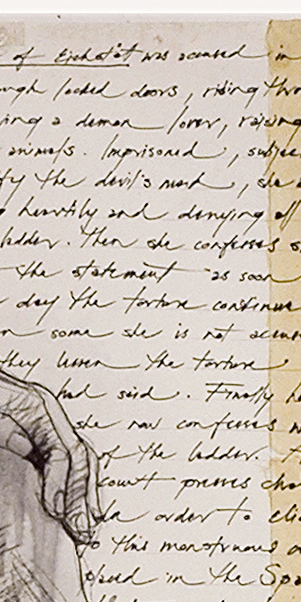 of Eichstätt was accused in
ugh locked doors, riding thro
ing a demon lover, raising
animals. Imprisoned, subjec
fy the devil's mark, she
heavily and denying all
ladder. Then she confesses s
the statement "as soon
day the torture continue
some she is not accus
they lessen the torture
had said. Finally he
she now confesses w
of the ladder.
court presses cha
in order to eli
to this monstrous
placed in the Spa